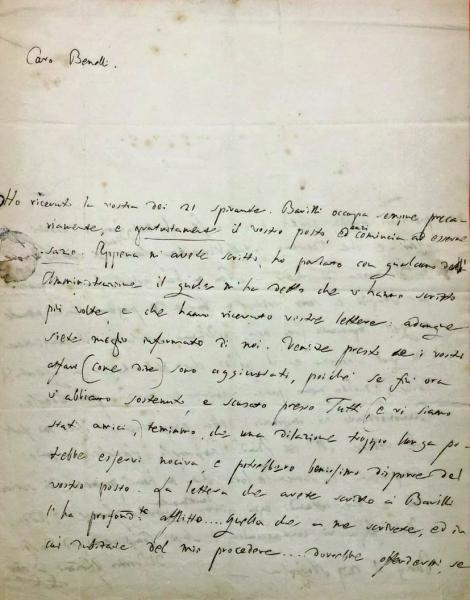 Caro Benelli.
Ho ricevuto la vostra dei 21 spirante. Barilli occupa sempre preca-
riamente, e gratuitamente il vostro posto, ed anzi comincia ad esserne
sazio. Appena mi avete scritto, ho parlato con qualcuno dell'
Amministrazione il quale m'ha detto che vi hanno scritto
più volte, e che hanno ricevuto vostre lettere: adunque
siete meglio informato di noi. Venite presto se i vostri
affari (come dite) sono aggiustati, poiché se fin ora
vi abbiamo sostenuto, e scusato presso Tutti, (e vi siamo
stati amici,) temiamo, che una dilazione troppo lunga po-
trebbe esservi nociva, e potrebbero benissimo disporre del
vostro posto. La lettera che avete scritto a Barilli
l'ha profond.te afflitto.... Quella che a me scrivete, ed in
cui dubitate del mio procedere.... dovrebbe offendermi, se